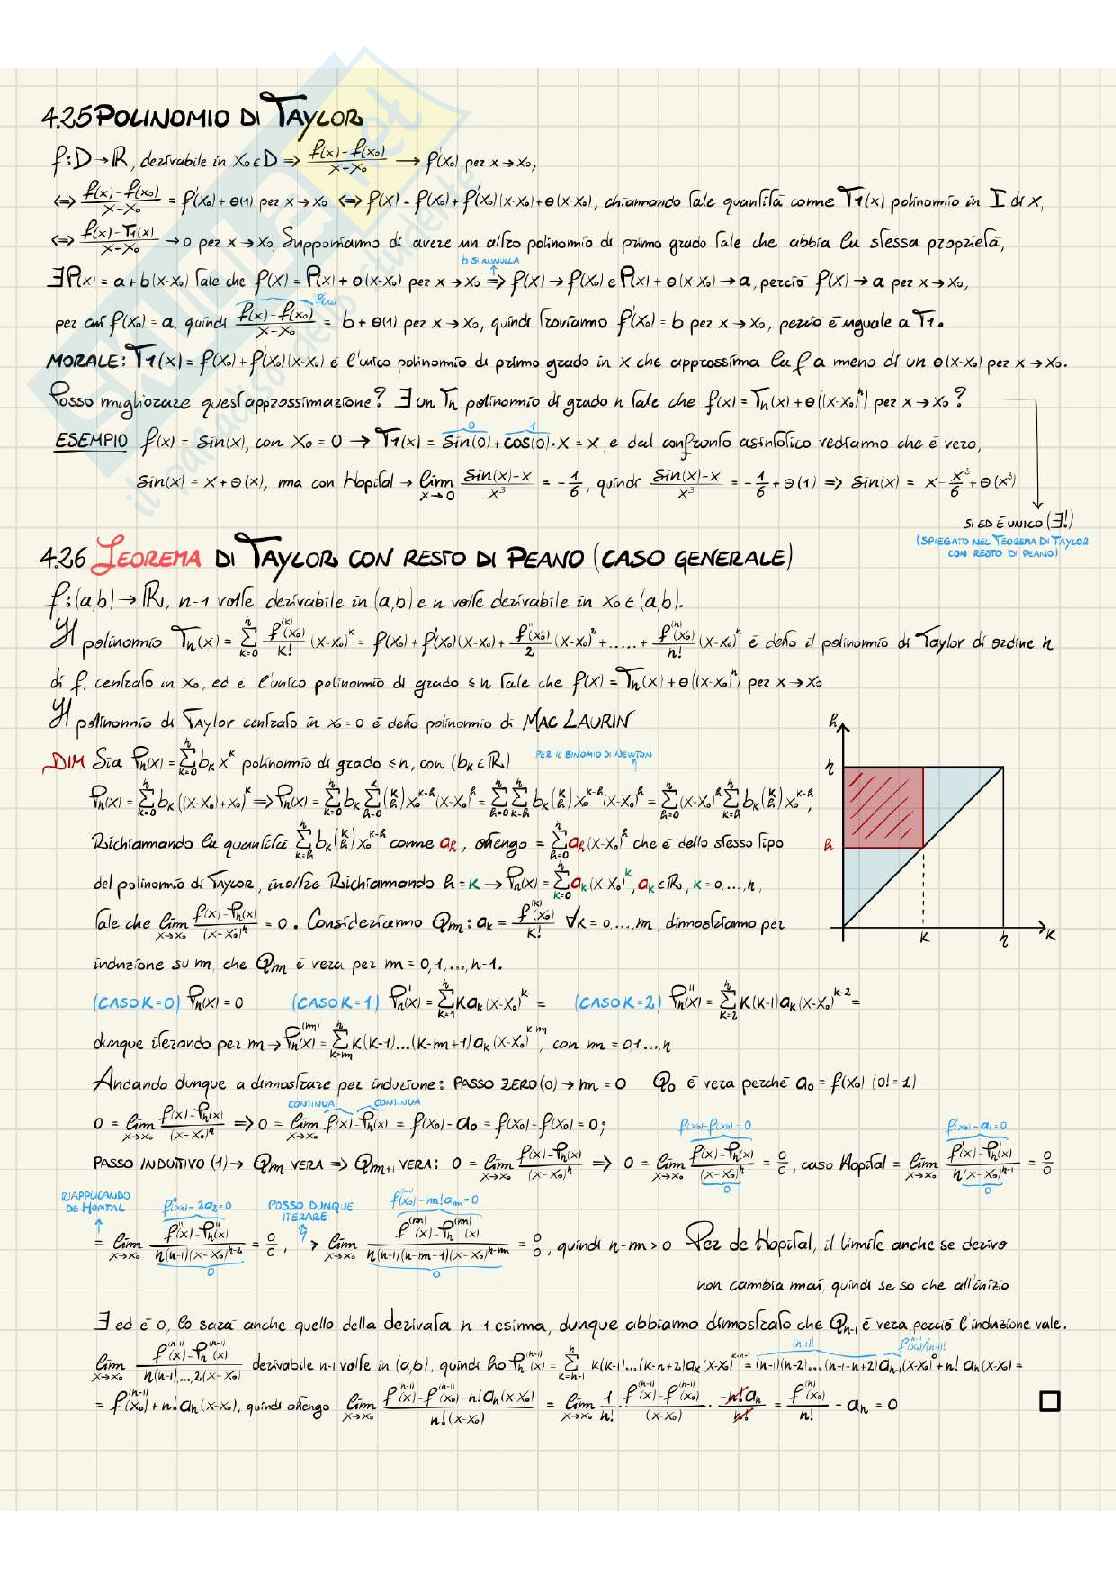 4.25 POLINOMIO DI TAYLOR
f: D → ℝ, derivabile in x₀ ∈ D ⇒ (f(x) - f(x₀))/(x - x₀) → f'(x₀) per x → x₀,
⇔ (f(x) - f(x₀))/(x - x₀) = f'(x₀) + o(1) per x → x₀ ⇔ f(x) = f(x₀) + f'(x₀)(x-x₀) + o(x-x₀), chiamando tale quantità come T₁(x) polinomio in I di x,
⇔ (f(x) - T₁(x))/(x - x₀) → 0 per x → x₀ Supponiamo di avere un altro polinomio di primo grado tale che abbia la stessa proprietà,
b SI ANNULLA
∃ P(x) = a + b(x-x₀) tale che f(x) = P(x) + o(x-x₀) per x → x₀ ⇒ f(x) → f(x₀) e P(x) + o(x-x₀) → a, perciò f(x) → a per x → x₀,
per cui f(x₀) = a, quindi (f(x) - f(x₀))/(x - x₀) = b + o(1) per x → x₀, quindi troviamo f'(x₀) = b per x → x₀, perciò è uguale a T₁.
MORALE: T₁(x) = f(x₀) + f'(x₀)(x-x₀) è l'unico polinomio di primo grado in x che approssima la f a meno di un o(x-x₀) per x → x₀.
Posso migliorare quest'approssimazione? ∃ un Tn polinomio di grado n tale che f(x) = Tn(x) + o((x-x₀)ⁿ) per x → x₀?
0 1
ESEMPIO f(x) = sin(x), con x₀ = 0 → T₁(x) = sin(0) + cos(0)·x = x, e dal confronto asintotico vediamo che è vero,
sin(x) = x + o(x), ma con Hopital → lim x→0 (sin(x) - x)/x³ = -1/6, quindi (sin(x) - x)/x³ = -1/6 + o(1) ⇒ sin(x) = x - x³/6 + o(x³)
SI ED È UNICO (∃!)
(SPIEGATO NEL TEOREMA DI TAYLOR
CON RESTO DI PEANO)
4.26 TEOREMA DI TAYLOR CON RESTO DI PEANO (CASO GENERALE)
f: (a,b) → ℝ, n-1 volte derivabile in (a,b) e n volte derivabile in x₀ ∈ (a,b).
Il polinomio Tn(x) = Σ k=0 n f⁽ᵏ⁾(x₀)/k! (x-x₀)ᵏ = f(x₀) + f'(x₀)(x-x₀) + f''(x₀)/2 (x-x₀)² + ..... + f⁽ⁿ⁾(x₀)/n! (x-x₀)ᵏ è detto il polinomio di Taylor di ordine n
di f, centrato in x₀, ed è l'unico polinomio di grado ≤ n tale che f(x) = Tn(x) + o((x-x₀)ⁿ) per x → x₀
Il polinomio di Taylor centrato in x₀ = 0 è detto polinomio di MAC LAURIN
DIM Sia Pn(x) = Σ k=0 n bₖ xᵏ polinomio di grado ≤ n, con (bₖ ∈ ℝ)
PER IL BINOMIO DI NEWTON
Pn(x) = Σ k=0 n bₖ((x-x₀)+x₀)ᵏ ⇒ Pn(x) = Σ k=0 n bₖ Σ h=0 k (k h) x₀ᵏ⁻ʰ (x-x₀)ʰ = Σ h=0 n Σ k=h n bₖ (k h) x₀ᵏ⁻ʰ (x-x₀)ʰ = Σ h=0 n (x-x₀)ʰ Σ k=h n bₖ (k h) x₀ᵏ⁻ʰ,
Richiamando la quantità Σ k=h n bₖ (k h) x₀ᵏ⁻ʰ come aₕ, ottengo = Σ h=0 n aₕ(x-x₀)ʰ che è dello stesso tipo
del polinomio di Taylor, inoltre Richiamando h = k → Pn(x) = Σ k=0 n aₖ(x-x₀)ᵏ, aₖ ∈ ℝ, k = 0,...,n,
tale che lim x→x₀ (f(x) - Pn(x))/(x-x₀)ⁿ = 0. Consideriamo Qm: aₖ = f⁽ᵏ⁾(x₀)/k! ∀k = 0,....,m, dimostriamo per
induzione su m, che Qm è vera per m = 0,1,...,n-1.
(CASO K=0) Pn(x) = 0 (CASO K=1) Pn'(x) = Σ k=1 n k aₖ(x-x₀)ᵏ = (CASO K=2) Pn''(x) = Σ k=2 n k(k-1)aₖ(x-x₀)ᵏ⁻² =
dunque iterando per m → Pn⁽ᵐ⁾(x) = Σ k=m n k(k-1)...(k-m+1)aₖ(x-x₀)ᵏ⁻ᵐ, con m = 0,1...,n
Andando dunque a dimostrare per induzione: PASSO ZERO (0) → m = 0 Q₀ è vera perché a₀ = f(x₀) (0! = 1)
CONTINUA CONTINUA
0 = lim x→x₀ (f(x) - Pn(x))/(x-x₀)ⁿ ⇒ 0 = lim x→x₀ f(x) - Pn(x) = f(x₀) - a₀ = f(x₀) - f(x₀) = 0;
f(x₀) - f(x₀) = 0 f'(x₀) - a₁ = 0
PASSO INDUTTIVO (1) → Qm VERA ⇒ Qm+1 VERA: 0 = lim x→x₀ (f(x) - Pn(x))/(x-x₀)ⁿ ⇒ 0 = lim x→x₀ (f(x) - Pn(x))/(x-x₀)ⁿ = 0/0, caso Hopital = lim x→x₀ (f'(x) - Pn'(x))/(n(x-x₀)ⁿ⁻¹) = 0/0
0 0
RIAPPLICANDO DE HOPITAL f''(x₀) - 2a₂ = 0 POSSO DUNQUE ITERARE f⁽ᵐ⁾(x₀) - m!aₘ = 0
= lim x→x₀ (f''(x) - Pn''(x))/(n(n-1)(x-x₀)ⁿ⁻²) = 0/0, → lim x→x₀ (f⁽ᵐ⁾(x) - Pn⁽ᵐ⁾(x))/(n(n-1)(n-m-1)(x-x₀)ⁿ⁻ᵐ) = 0/0, quindi n-m > 0 Per de Hopital, il limite anche se derivo
0 0
non cambia mai, quindi se so che all'inizio
∃ ed è 0, lo sarà anche quello della derivata n-1 esima, dunque abbiamo dimostrato che Qn-1 è vera perciò l'induzione vale.
lim x→x₀ (f⁽ⁿ⁻¹⁾(x) - Pn⁽ⁿ⁻¹⁾(x))/(n(n-1)!...2(x-x₀)) derivabile n-1 volte in (a,b), quindi ho Pn⁽ⁿ⁻¹⁾(x) = Σ k=n-1 n k(k-1)...(k-n+2)aₖ(x-x₀)ᵏ⁻ⁿ⁺¹ = (n-1)(n-2)...(n-1-n+2)aₙ₋₁(x-x₀)⁰ + n! aₙ(x-x₀) =
= f⁽ⁿ⁻¹⁾(x₀) + n! aₙ(x-x₀), quindi ottengo lim x→x₀ (f⁽ⁿ⁻¹⁾(x) - f⁽ⁿ⁻¹⁾(x₀) - n! aₙ(x-x₀))/(n!(x-x₀)) = lim x→x₀ 1/n! · (f⁽ⁿ⁻¹⁾(x) - f⁽ⁿ⁻¹⁾(x₀))/(x-x₀) · -n! aₙ/n! = f⁽ⁿ⁾(x₀)/n! - aₙ = 0
k
n
h
k n k